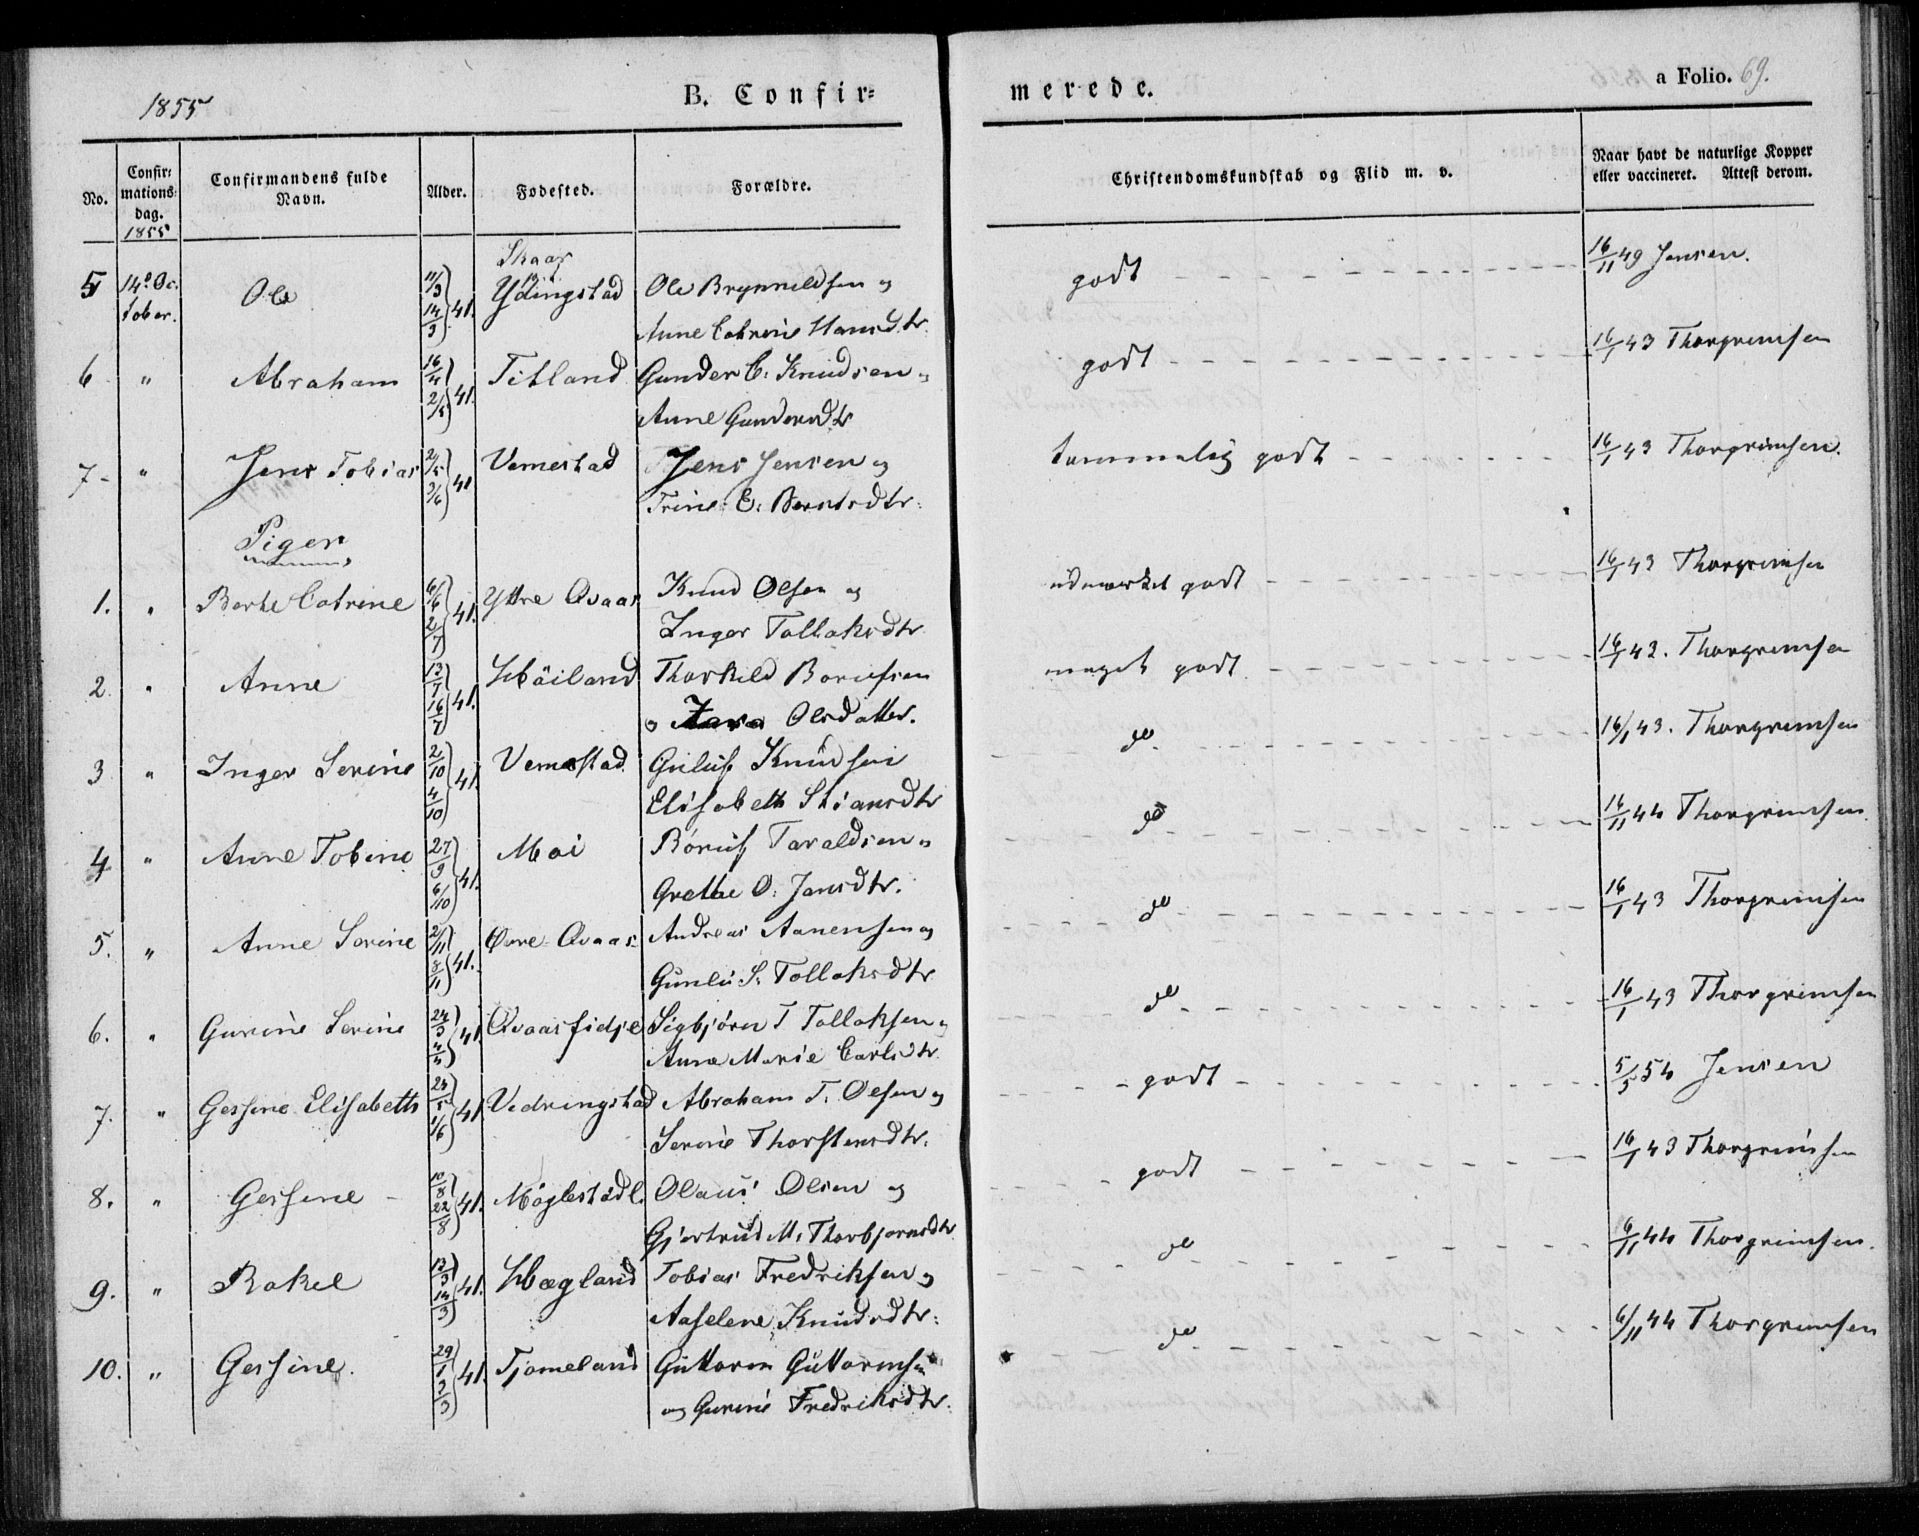 1855
B. Confirmerede.
a Folio. 69.
No.
Confirmationsdag.
1855
Confirmandens fulde Navn.
Alder.
Fodested.
Forældre.
Christendomskundskab og Flid m. v.
Naar havt de naturlige Kopper eller vaccineret. Attest derom.
Skaar
5 14de October. Ole 11/3 14/3 41. Ydingstad Ole Brynnildsen og godt 16/11 49 Jensen.
Anne Catrine Hansdtr.
6 " Abraham 16/4 2/5 41. Titland Gunder C. Knudsen og godt 16/1 43 Thorgrimsen
Anne Gundersdtr
7 - " Jens Tobias 2/5 3/6 41 Vemestad Jens Jensen og temmelig godt 16/1 43 Thorgrimsen.
Trine C. Berntsdtr.
Piger
1. " Berte Catrine 6/6 2/7 41. Yttre Qvaas Knud Olsen og udmærket godt 16/1 43 Thorgrimsen
Inger Tollaksdtr
2. " Anne 13/7 16/7 41. Høiland Thorkild Børufsen meget godt 16/1 43. Thorgrimsen
o Olsdatter.
3 " Inger Serine 2/10 4/10 41. Vemestad Guluf Knudsen do 16/1 43. Thorgrimsen
Elisabeth Stiansdtr
4 " Anne Tobine 27/9 6/10 41. Moi Børuf Taraldsen og do 16/11 44 Thorgrimsen.
Grethe O. Jensdtr.
5. " Anne Serine 2/11 8/11 41. Øvre Qvaas Andreas Aanensen og do 16/1 43 Thorgrimsen
Gunlu S. Tollaksdtr
6. " Gurine Serine 24/3 4/4 41 Qvaasfidje Sigbjørn T Tollaksen og do 16/1 43 Thorgrimsen
Anne Marie Carlsdtr
7. " Gessine Elisabeth 23/5 1/6 41 Vedringstad Abraham T. Olsen og godt 5/5 54 Jensen
Serine Thorstensdtr.
8. " Gessine 10/8 22/8 41. Møglestadl. Olaus Olsen og godt 16/1 43 Thorgrimsen
Gjertrud M. Thorbjørnsdtr
9. " Rakel 13/3 14/3 41. Hægland Tobias Fredriksen og do 6/11 44 Thorgrimsen.
Aaselene Knudsdtr.
10. " Gessine. 29/1 3/3 41. Tjomeland Guttorm Guttormsen do 6/11 44 Thorgrimsen
og Gurine Fredriksdtr.